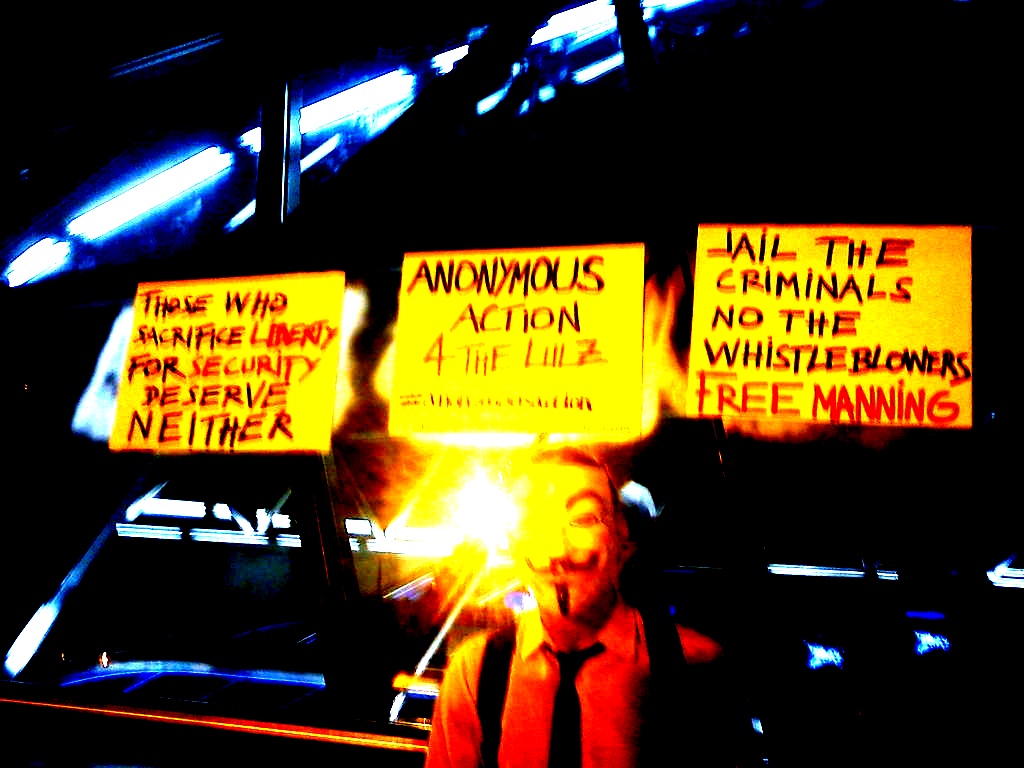 THOSE WHO
SACRIFICE LIBERTY
FOR SECURITY
DESERVE
NEITHER
ANONYMOUS
ACTION
4 THE LULZ
JAIL THE
CRIMINALS
NO THE
WHISTLEBLOWERS
FREE MANNING